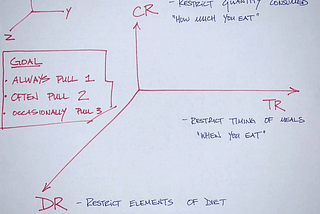 CR
- RESTRICT QUANTITY CONSUMED
"HOW MUCH YOU EAT"
Y
Z
GOAL
• ALWAYS PULL 1
• OFTEN PULL 2
• OCCASIONALLY PULL 3
TR
- RESTRICT TIMING OF MEALS
"WHEN YOU EAT"
DR - RESTRICT ELEMENTS OF DIET